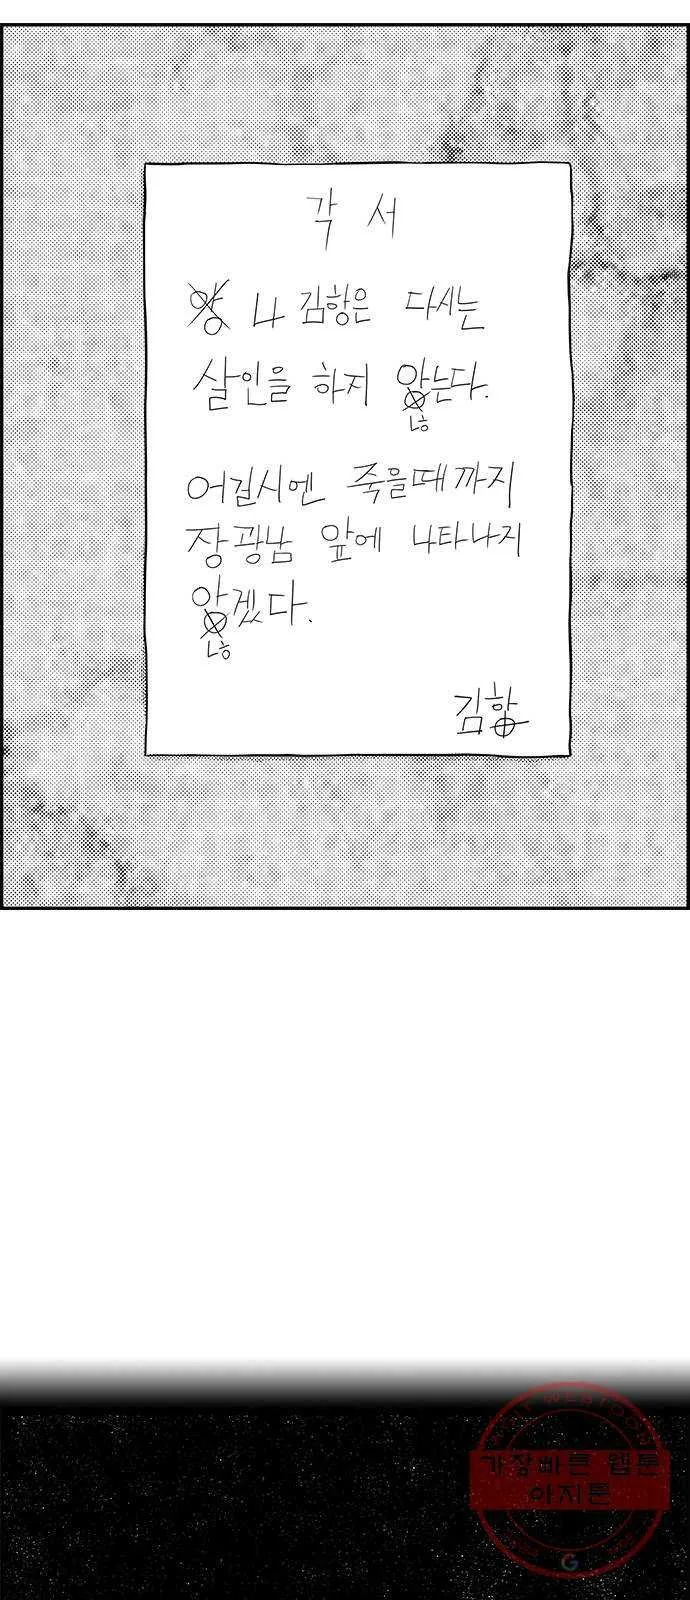 각 서
양 나 김항은 다시는
살인을 하지 않는다.
어길시엔 죽을때까지
장광남 앞에 나타나지
않겠다.
김항
가장빠른 웹툰
아지툰